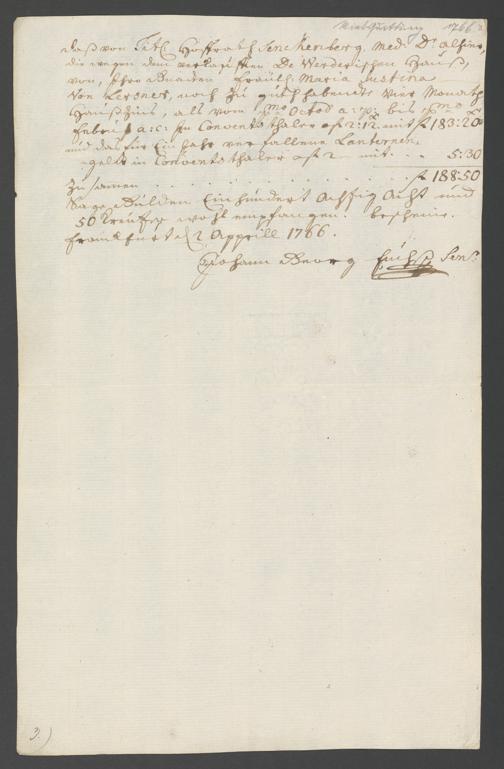 Mietquittung 1766
daß von Titl. Hoffrath Senckenberg, Med. Dr. alhier,
die wegen dem verkaufften De Werderischen Hauß,
von, Ihro Gnaden Fräul. Maria Justina
von Lersner, noch zu guth habende Vier Monath
Haußzinß, als vom 1mo Octob a. p. bis 1mo
Febru. a: c: in Convents thaler à f 2:12. mit f 183:20
und das für Ein Jahr verfallene Lanternen-
geld in Convents thaler à f 2 mit . . 5:30
Zusamen . . . . . . . . f 188:50
Sage Gulden Einhundert Achtzig Acht und
50 Kreutzer wohl empfangen. bescheine.
Franckfurt d. 2 Apprill 1766.
Johann Georg Sen.
3.)